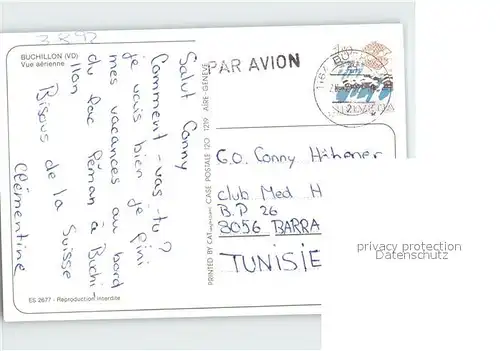 3 K 42
BUCHILLON (VD)
Vue aérienne
Salut Conny
Comment-vas-tu?
je vais bien je fini
mes vacances au bord
du lac Léman à Buchi-
llon
Bisous de la Suisse
Clémentine
ES 2677 - Reproduction interdite
CASE POSTALE 120 1219 AIRE-GENÈVE
PRINTED BY
PAR AVION
G.O. Conny Hübener
Club Med H
B.P 26
8056 BARRA
TUNISIE
privacy protection
Datenschutz